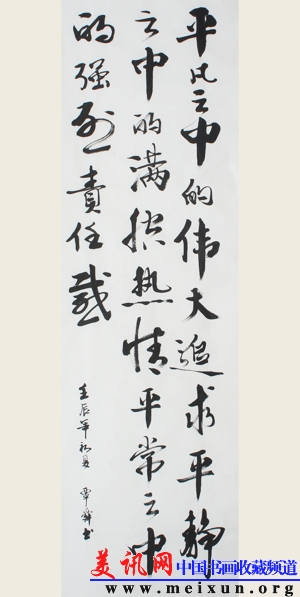 平凡之中的伟大追求平静
之中的满腔热情平常之中
的强烈责任感
壬辰年初夏 覃书
美讯网 中国书画收藏频道
www.meixun.org